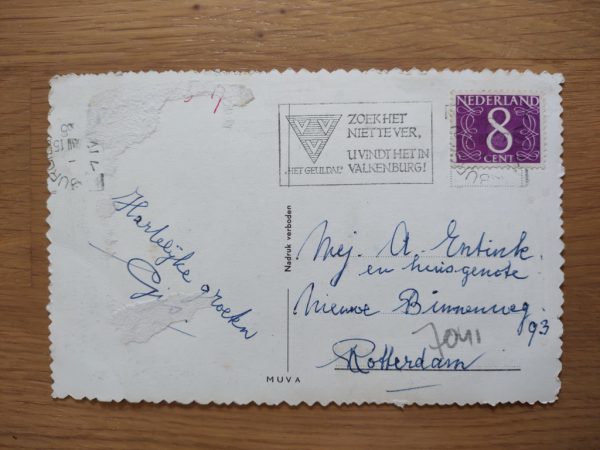 ZOEK HET
NIET TE VER,
U VINDT HET IN
VALKENBURG!
"HET GEULDAL"
NEDERLAND
8
CENT
Hartelijke groeten
Nadruk verboden
Mej. A. Entink.
en huisgenote.
Nieuwe Binnenweg
93
Rotterdam
MUVA